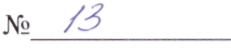 № 13